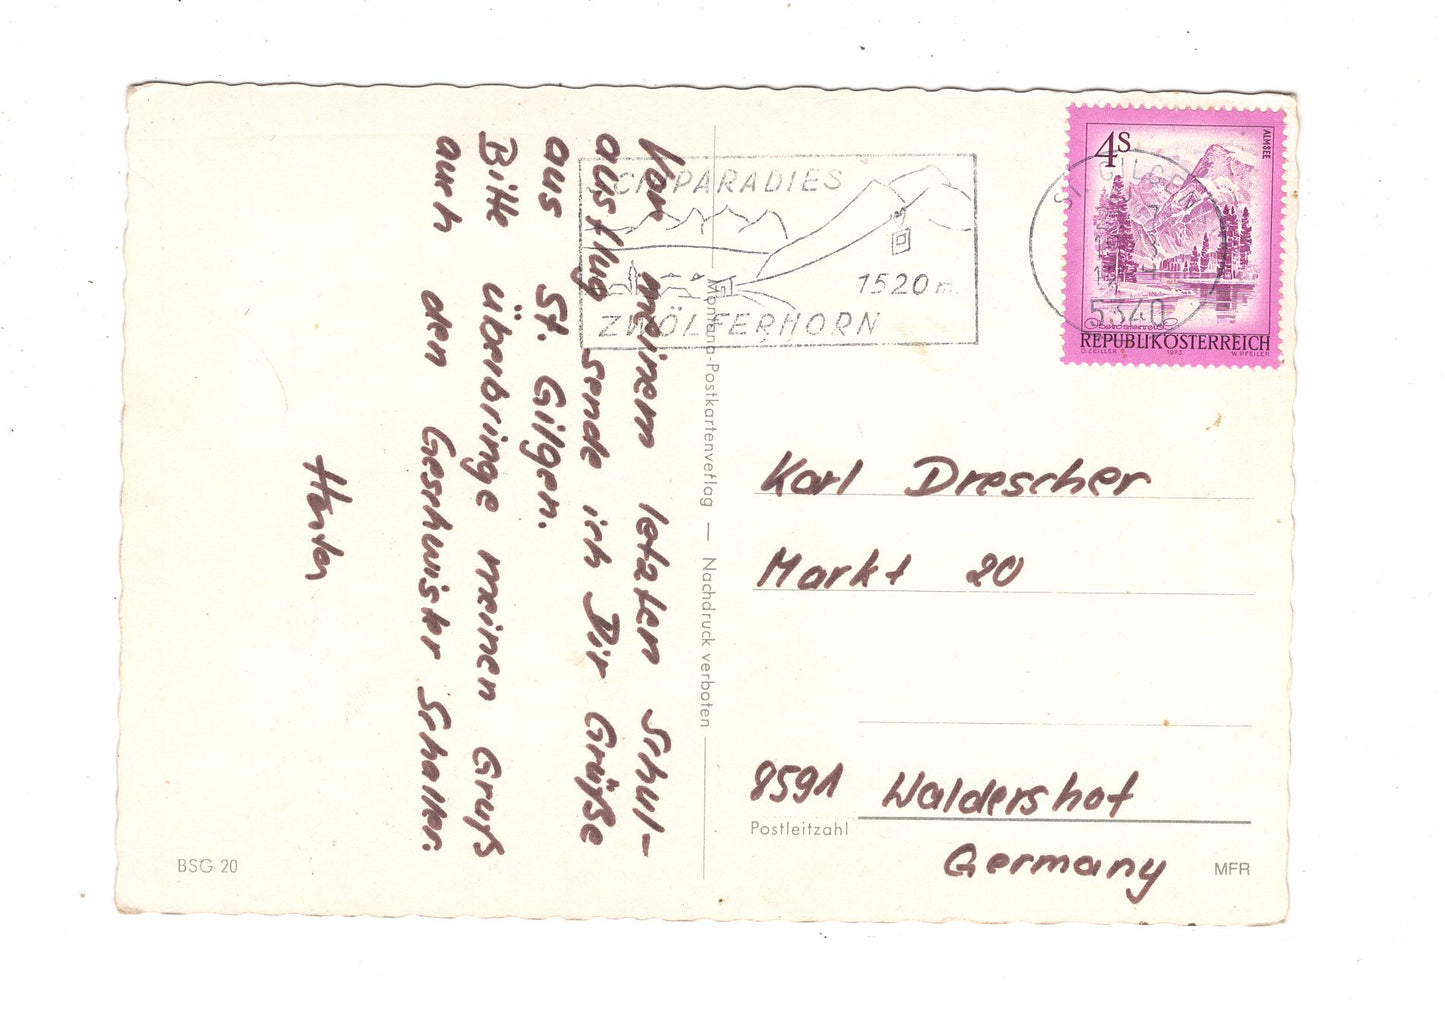 Von meinem letzten Schul-
ausflug sende ich Dir Grüße
aus St. Gilgen.
Bitte überbringe meinen Gruß
auch den Geschwister Schaller.
SCHIPARADIES
1520 m.
ZWÖLFERHORN
ST. GILGEN
5340
4S
ALMSEE
REPUBLIK ÖSTERREICH
O. ZEILLER 1973 W. PFEILER
Montana-Postkartenverlag — Nachdruck verboten
Karl Drescher
Markt 20
8591 Waldershof
Postleitzahl
Germany
BSG 20
MFR